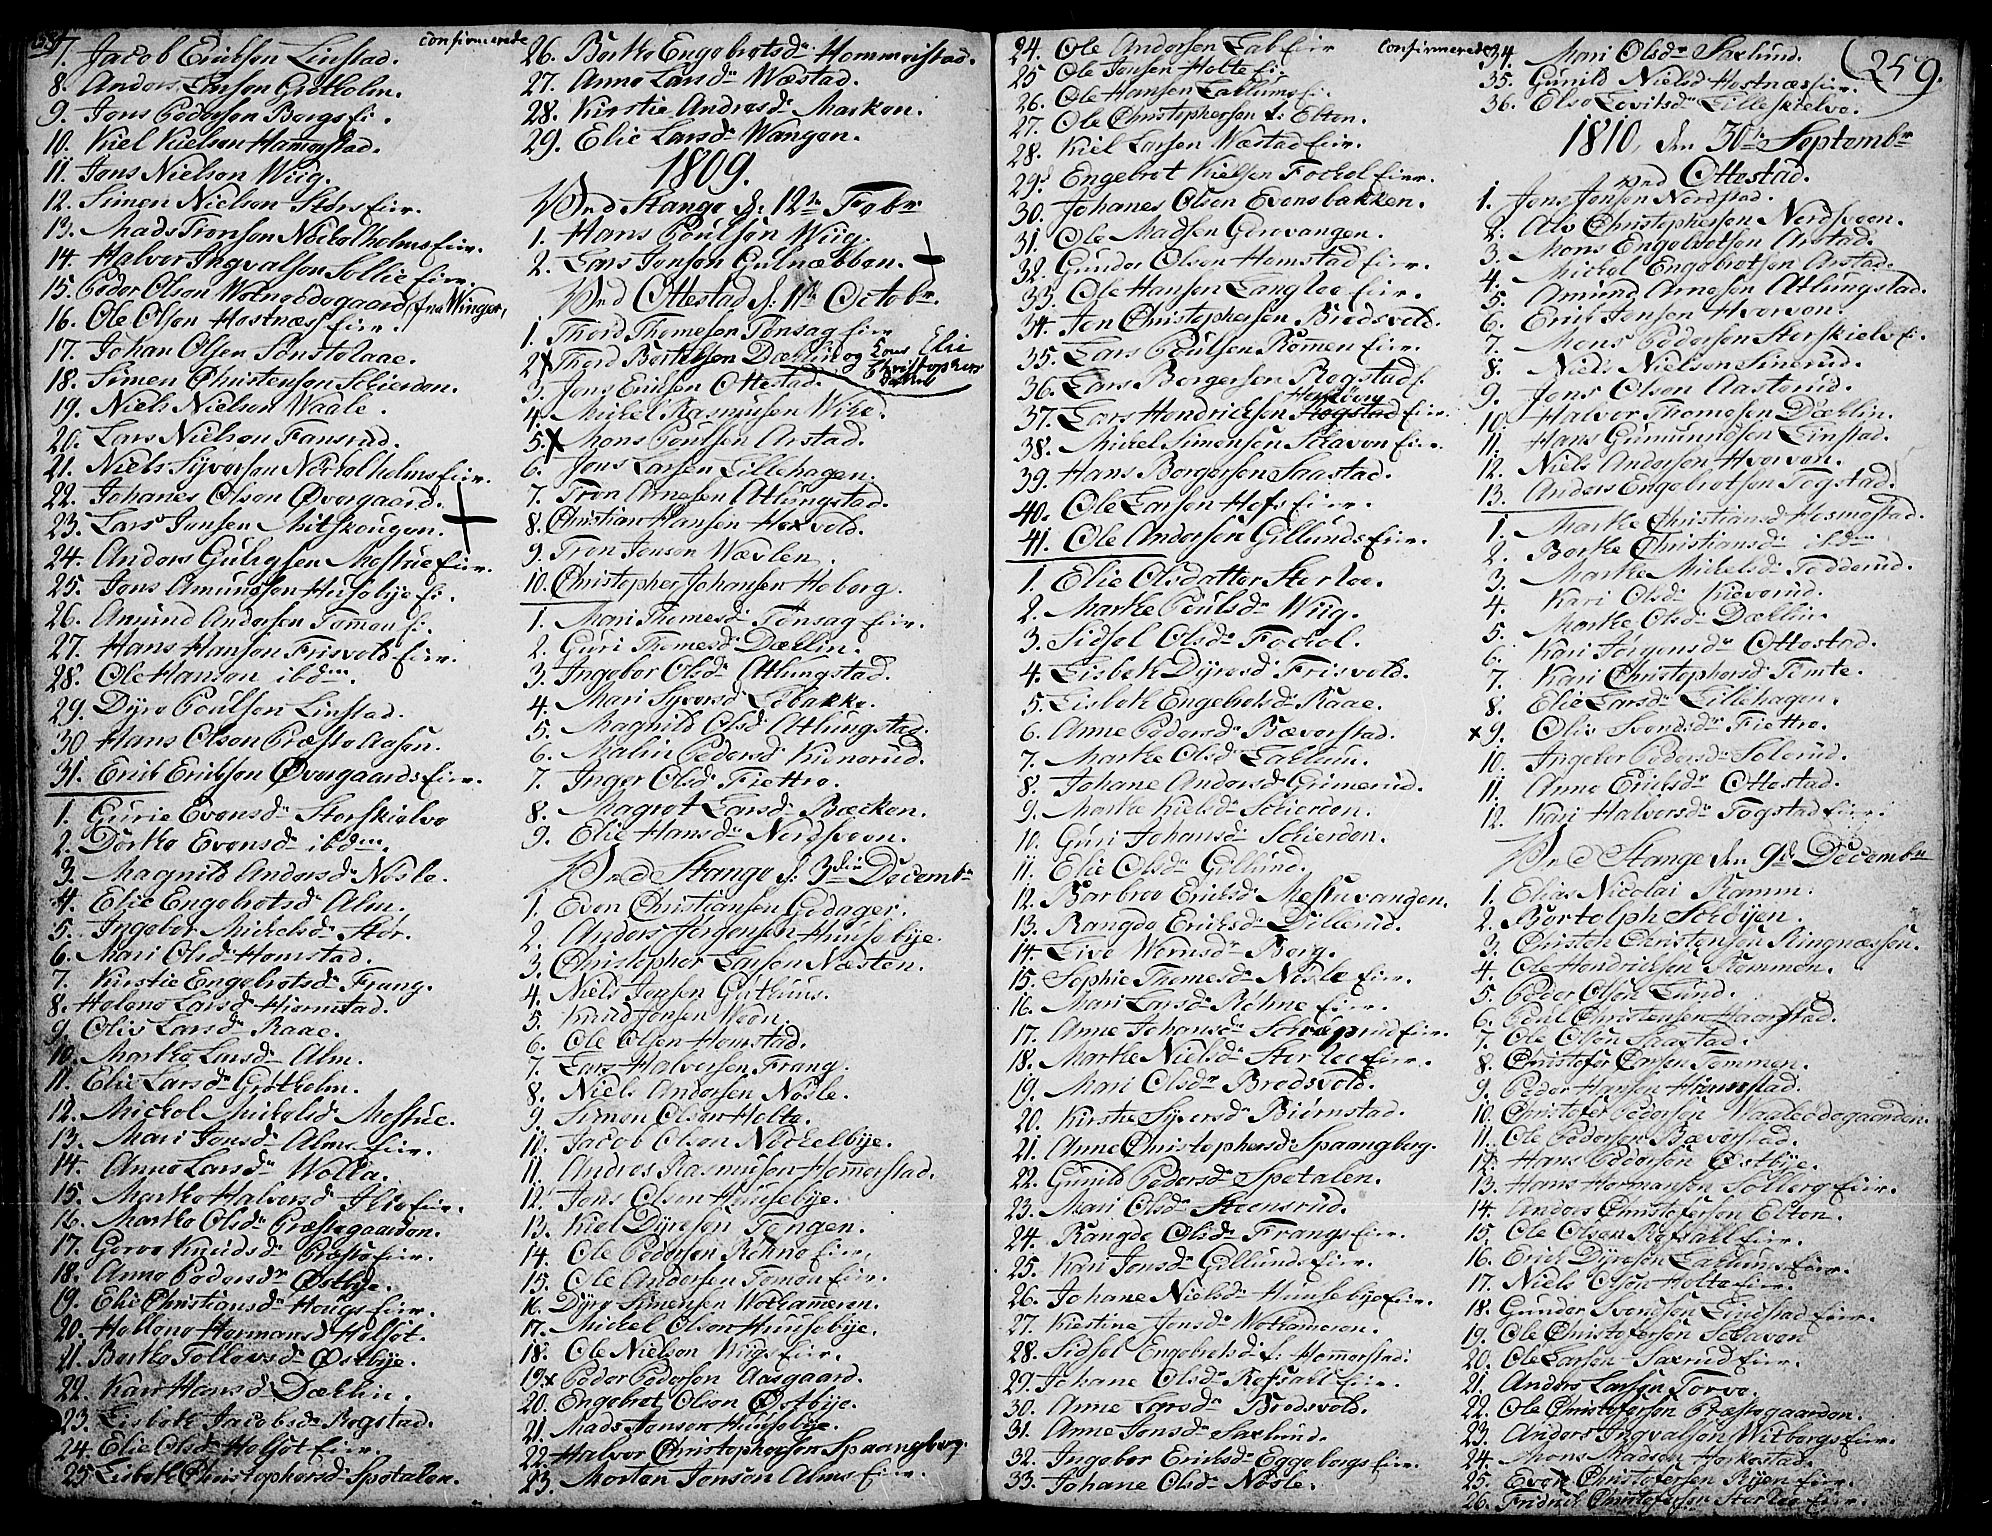 confirmerede
7. Jacob Erikson Linstad.
8. Anders Larson Grötholm.
9. Jens Pederson Borgs Ei.
10. Kiel Kielson Hamerstad.
11. Jens Nielson Wiig.
12. Simen Nielson Störs Eier.
13. Mads Tronson Nöckelholms Eier.
14. Halvor Ingvalson Sollie Eier.
15. Peder Olson fra Winger,
16. Ole Olson Hostnæss Eier.
17. Johan Olson
18. Simen Christenson Schierden.
19. Niels Nielson Waale.
20. Lars Nielson Fansrud.
21. Niels Syverson Nöckelholms Eier.
22. Johanes Olson Övergaard.
23. Lars Jensen Mitskougen.
24. Anders Gulbrgsen Mostue Eier.
25. Jens Amundson Husebye Ei.
26. Amund Anderson Tomen Ei.
27. Hans Hanson Frisvold Eier.
28. Ole Hanson ibdm.
29. Dyre Poulson Linstad.
30 Hans Olson Præsteaasen.
31. Erik Erikson Övergaards Eier.
1. Gurie Evensdr Storskielve
2. Dorthe Evensdr ibdm.
3. Magnild Andersdr Nösle.
4. Elie Engebretsdr Alm.
5. Ingebor Mickelsdr Stör.
6. Mari Olsdr Homstad.
7. Kirstie Engebretsdr Frang.
8. Helene Larsdr Hiermstad.
9. Oliv Larsdr Raae.
10. Marthe Larsdr Alm.
11. Elie Larsdr Grötholm.
12. Mickol Mickelsdr Mostue.
13. Mari Jensdr Alms Eier.
14. Anne Larsdr Wolla.
15. Marthe Halversdr Flie Eier.
16. Marthe Olsdr Præstegaarden.
17. Goroe Knudsdr Eier.
18. Anne Pedersdr Östbye.
19. Elie Christiansdr Hougs Eier.
20. Hellene Hermansdr Holsöt.
21. Berthe Tollevsdr Östbye.
22. Kari Hansdr Dæhlin.
23. Lisbeth Jacobsdr Rogstad.
24. Elie Olsdr Holsöt Eier.
25. Lisbeth Christophersdr Spetalen.
26. Berthe Engebretsdr Hommerstad.
27. Anne Larsdr Wæstad.
28. Kirstie Andersdr Marken.
29. Elie Larsdr Wangen.
1809.
Ved Stange d: 12te Febr
1. Hans Poulsen Wiig.
2. Lars Jensen Gulnæbben.
Ved Ottestad d: 11te Octobr.
1. Thord Thomesen Tönsag Eier
2 Thord Bertelsen Dæhlin og Elie Christophers
3. Jens Ericksen Ottestad.
4. Mickel Rasmusen Wike.
5. Mons Poulsen Arstad.
6. Jens Larsen Lillehagen.
7. Tron Arnesen Atlungstad.
8. Christian Hansen Hoxvold.
9. Tron Jensen Wævlen.
10. Christopher Johansen Hoberg.
1. Mari Thomesdr Tönsag Eier.
2. Guri Thomesdr Dæhlin.
3. Ingebor Olsdr Atlungstad.
4. Mari Syversdr Löbakke.
5. Magnild Olsdr Atlungstad.
6. Malin Pedersdr Kidnerud.
7. Inger Olsdr Fiettre.
8. Magret Larsdr Bæcken.
9. Elie Hansdr Nordsveen.
Ved Stange d: 3die Decembr
1. Even Christiansen Godager.
2. Anders Jörgensen Huusebye.
3. Christopher Larsen Næsten.
4. Niels Jensen Guthuus.
5. Knud Jensen Veen.
6. Ole Olsen Homstad.
7. Lars Halversen Frang.
8. Niels Andersen Nösle.
9. Simen Olsen Holte.
10. Jacob Olsen Nöckelbye.
11. Andres Rasmusen Hommerstad.
12. Jens Olsen Huusebye.
13. Kiel Dyresen Tengen.
14. Ole Pedersen Röhne Eier.
15. Ole Andersen Tomen Eier.
16. Dyre Simensen Wolkameren.
17. Mickel Olsen Huusebye.
18. Ole Nielsen Wiigs Eier.
19. Peder Pedersen Aasgaard.
20. Engebret Olsen Östbye.
21. Mads Jensen Huusebye.
22. Halvor Christophersen Spaangberg.
23. Morten Jensen Alms Eier.
confirmerede
259.
24. Ole Andersen Lab Eier
25 Ole Jensen Holte Ei.
26. Ole Hansen Laklums Ei.
27. Ole Christophersen f: Elton.
28. Kiel Larsen Wæstad Eier.
29. Engebret Kielsen Fockol Eier.
30. Johanes Olsen Evensbakken.
31. Ole Madsen Görevangen.
32. Gunder Olsen Homstad Eier.
33. Ole Hansen Langloe Eier.
34. Jon Christophersen Bredsvold.
35. Lars Poulsen Römen Eier.
36. Lars Borgersen Rogstad
37. Lars Hendricksen Eier.
38. Mickel Simensen Schaven Eier.
39. Hans Borgersen Saastad.
40. Ole Larsen Hofs Eier.
41. Ole Andersen Gillunds Eier.
1. Elie Olsdatter Storloe.
2. Marthe Poulsdr Wiig.
3. Sidsel Olsdr Fockol.
4. Lisbeth Dyresdr Frisvold.
5. Lisbeth Engebretsdr Raae.
6. Anne Pedersdr Bæverstad.
7. Marthe Olsdr Laklum.
8. Johane Andersdr Grimerud.
9. Marthe Kielsdr Schierden.
10. Guri Johansdr Schierden.
11. Elie Olsdr Gillund.
12. Barbroe Ericksdr Mostuvangen.
13. Rangde Ericksdr Dillerud.
14. Live Wernsdr Borg.
15. Sophie Thomesdr Nösle Eier.
16. Mari Larsdr Röhne Eier.
17. Anne Johansdr Schræprud Eier.
18. Marthe Nielsdr Storloe Eier.
19. Mari Olsdr Bredsvold.
20. Kirstie Syversdr Biörnstad.
21. Anne Christophersdr Spaangberg.
22. Gunild Pedersdr Spetalen.
23. Mari Olsdr Steensrud.
24. Rangde Olsdr Frangs Eier.
25. Kari Jensdr Gillunds Eier.
26. Johane Nielsdr Huusebye Eier.
27. Kirstine Jensdr Wolkameren.
28. Sidsel Engebretsd: f: Hommerstad.
29. Johane Olsdr Rofsahl Eier.
30. Anne Larsdr Bredsvold.
31. Anne Jensdr Saxlund.
32. Ingebor Ericksdr Eggebergs Eier.
33. Johane Olsdr Nösle.
34. Mari Olsdr Saxlund.
35. Gunild Nielsd Hostnæs Eier.
36. Else Lovisdr Lilleskielve.
1810, den 30te Septembr
ved Ottestad.
1. Jens Jensen Nordstad.
2. Alv Christophersen Nordsveen.
3. Mons Engebretsen Arstad.
4. Mickel Engebretsen Arstad.
5. Amund Arnesen Atlungstad.
6. Erick Jensen Hverven.
7. Mons Pedersen Storskielv Ei.
8. Niels Nielsen Sinerud.
9. Jens Olsen Aasterud.
10. Halvor Thomesen Dæhlin.
11. Hans Gumundsen Linstad.
12. Niels Andersen Hverven.
13. Anders Engebretsen Fogstad.
1. Marthe Christiansd Hosmestad.
2. Berthe Christiansdr ibdm
3. Marthe Mickelsdr Tedderud.
4. Kari Olsdr Kieverud.
5. Marthe Olsdr Dæhlin.
6. Kari Jörgensdr Ottestad.
7. Kari Christophersd Tomte.
8. Elie Larsdr Lillehagen.
9. Oliv Svendsdr Fiettre.
10. Ingebor Pedersdr Solerud.
11. Anne Ericksdr Ottestad.
12. Kari Halversdr Fogstad Eier.
Ved Stange den 9de Decembr
1. Elias Nicolai Ramm.
2. Bertolph Schöyen.
3. Christen Christensen Ringnæssen.
4. Ole Hendricksen Rommen.
5. Peder Olsen Lund.
6. Poul Christensen Haarstad.
7. Ole Olsen Saastad.
8. Christofer Larsen Tommen.
9. Peder Hansen Hiermstad.
10. Christofer Pedersen Vaaleödegaarden.
11. Ole Pedersen Bæverstad.
12. Hans Pedersen Östbye.
13. Hans Hermansen Solberg Eier.
14. Anders Christofersen Elton.
15. Ole Olsen Rofsahl Eier.
16. Erick Dyresen Laklum Eier.
17. Niels Olsen Holte Eier.
18. Gunder Svendsen Lindstad Eier.
19. Ole Christofersen Schaven
20. Ole Larsen Saxrud Eier.
21. Anders Larsen Torve.
22. Ole Christofersen Præstegaarden.
23. Anders Ingvalsen Witbergs Eier.
24. Mons Madsen Horkestad.
25. Even Christofersen Ryen Eier.
26. Fridrick Christofersen Storloe Eier.